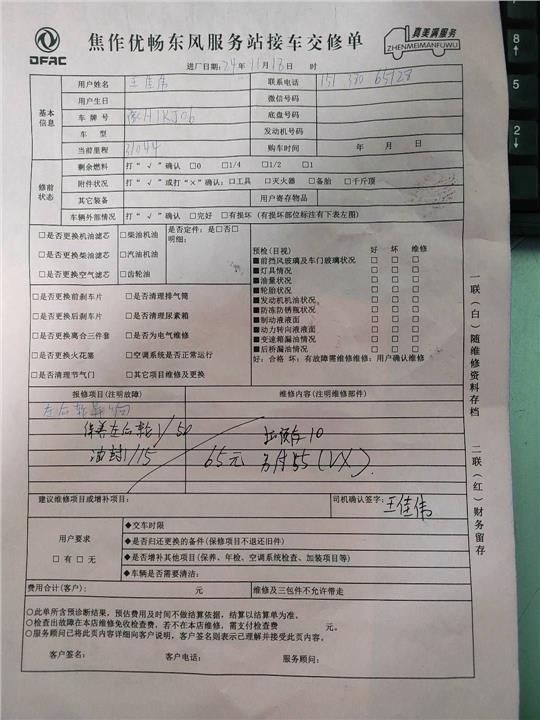 DFAC
焦作优畅东风服务站接车交修单
真美满服务
ZHENMEIMANFUWU
进厂日期:24年11月13日 时
基本信息
用户姓名 王佳伟 联系电话
用户生日 微信号码
车牌号 底盘号码
车型 发动机号码
当前里程 31044 购车时间 年 月 日
修前状态
剩余燃料 打"√"确认 □0 □1/4 □1/2 □1
附件状况 打"√"或打"×"确认:□工具 □灭火器 □备胎 □千斤顶
其它装备 用户寄存物品
车辆外部情况 打"√"确认 □完好 □有损坏(有损坏部位标注有下表左图)
□是否更换机油滤芯 □柴油机油 是否定件:是□否□
□是否更换柴油滤芯 □汽油机油 明细:
□是否更换空气滤芯 □齿轮油
预检(目视) 好 坏 维修
■前挡风玻璃及车门玻璃状况
■灯具情况
■油量状况
■轮胎状况
■发动机机油状况
■防冻防锈瓶状况
■制动液液面
■动力转向液液面
■变速箱漏油情况
■后桥漏油情况
好:合格 坏:有故障需维修维修:用户确认维修
□是否更换前刹车片 □是否清理排气筒
□是否更换后刹车片 □是否清理尿素箱
□是否更换离合三件套 □是否为电气维修
□是否更换火花塞 □空调系统是否正常运行
□是否清理节气门 □其它项目维修及更换
报修项目(注明故障) 维修内容(注明维修部件)
左后轮异响
保养左后轮1/50
油封1/15 65元
建议维修项目或增补项目: 司机确认签字:王佳伟
用户要求
□有□无
◆交车时限
◆是否归还更换的备件(保修项目不退还旧件)
◆是否增补其他项目(保养、年检、空调系统检查、加装项目等)
◆车辆是否需要清洁:
费用合计(客户): 元 维修及三包件不允许带走
○此单所含预诊断结果,预估费用及时间不做结算依据,结算以结算单为准。
○检查出故障在本店维修免收检查费,若不在本店维修,需支付检查费 元。
○服务顾问已将此页内容详细向客户说明,客户签名则表示已理解并接受此页内容。
客户签名: 客户电话: 服务顾问:
一联(白)随维修资料存档 二联(红)财务留存
8
5
2